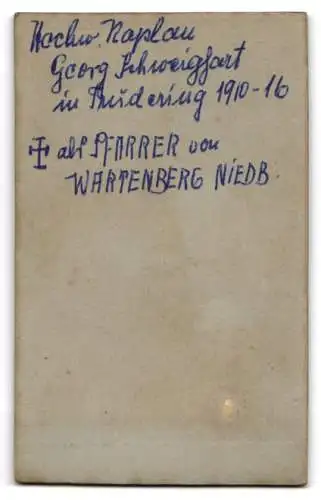 Hochw. Kaplan
Georg Schweighart
in Trudering 1910-16
als PFARRER von
WARTENBERG NIEDB.